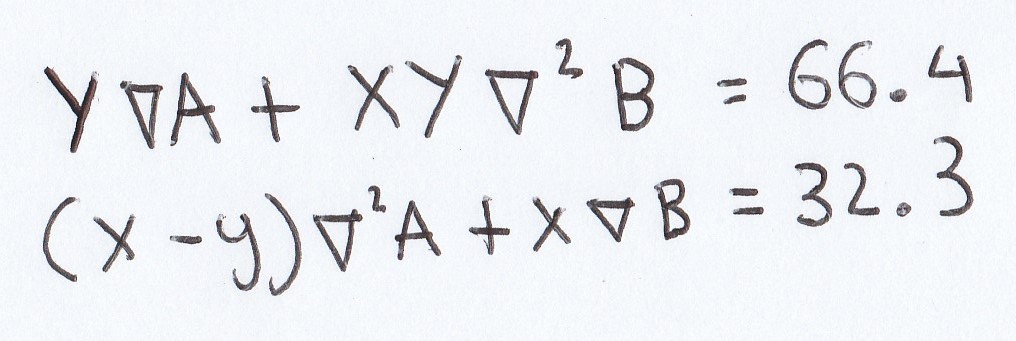 Y∇A + XY∇²B = 66.4
(x-y)∇²A + x∇B = 32.3